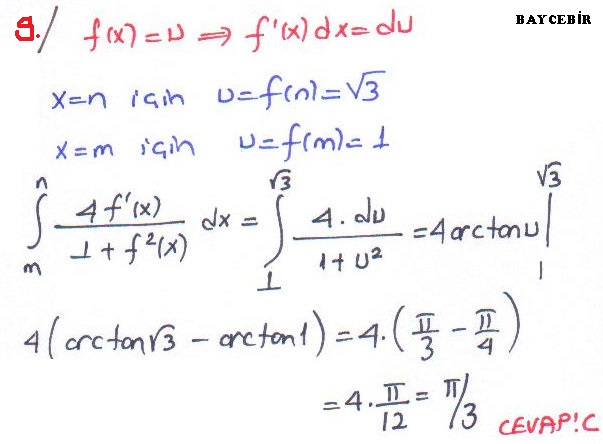 BAYCEBİR
9./ f(x) = u ⇒ f'(x) dx = du
x=n için u=f(n)=√3
x=m için u=f(m)=1
∫_m^n 4f'(x) / (1+f²(x)) dx = ∫_1^√3 4.du / (1+u²) = 4 arctan u |_1^√3
4(arctan√3 - arctan1) = 4.(π/3 - π/4)
= 4.π/12 = π/3 CEVAP!C